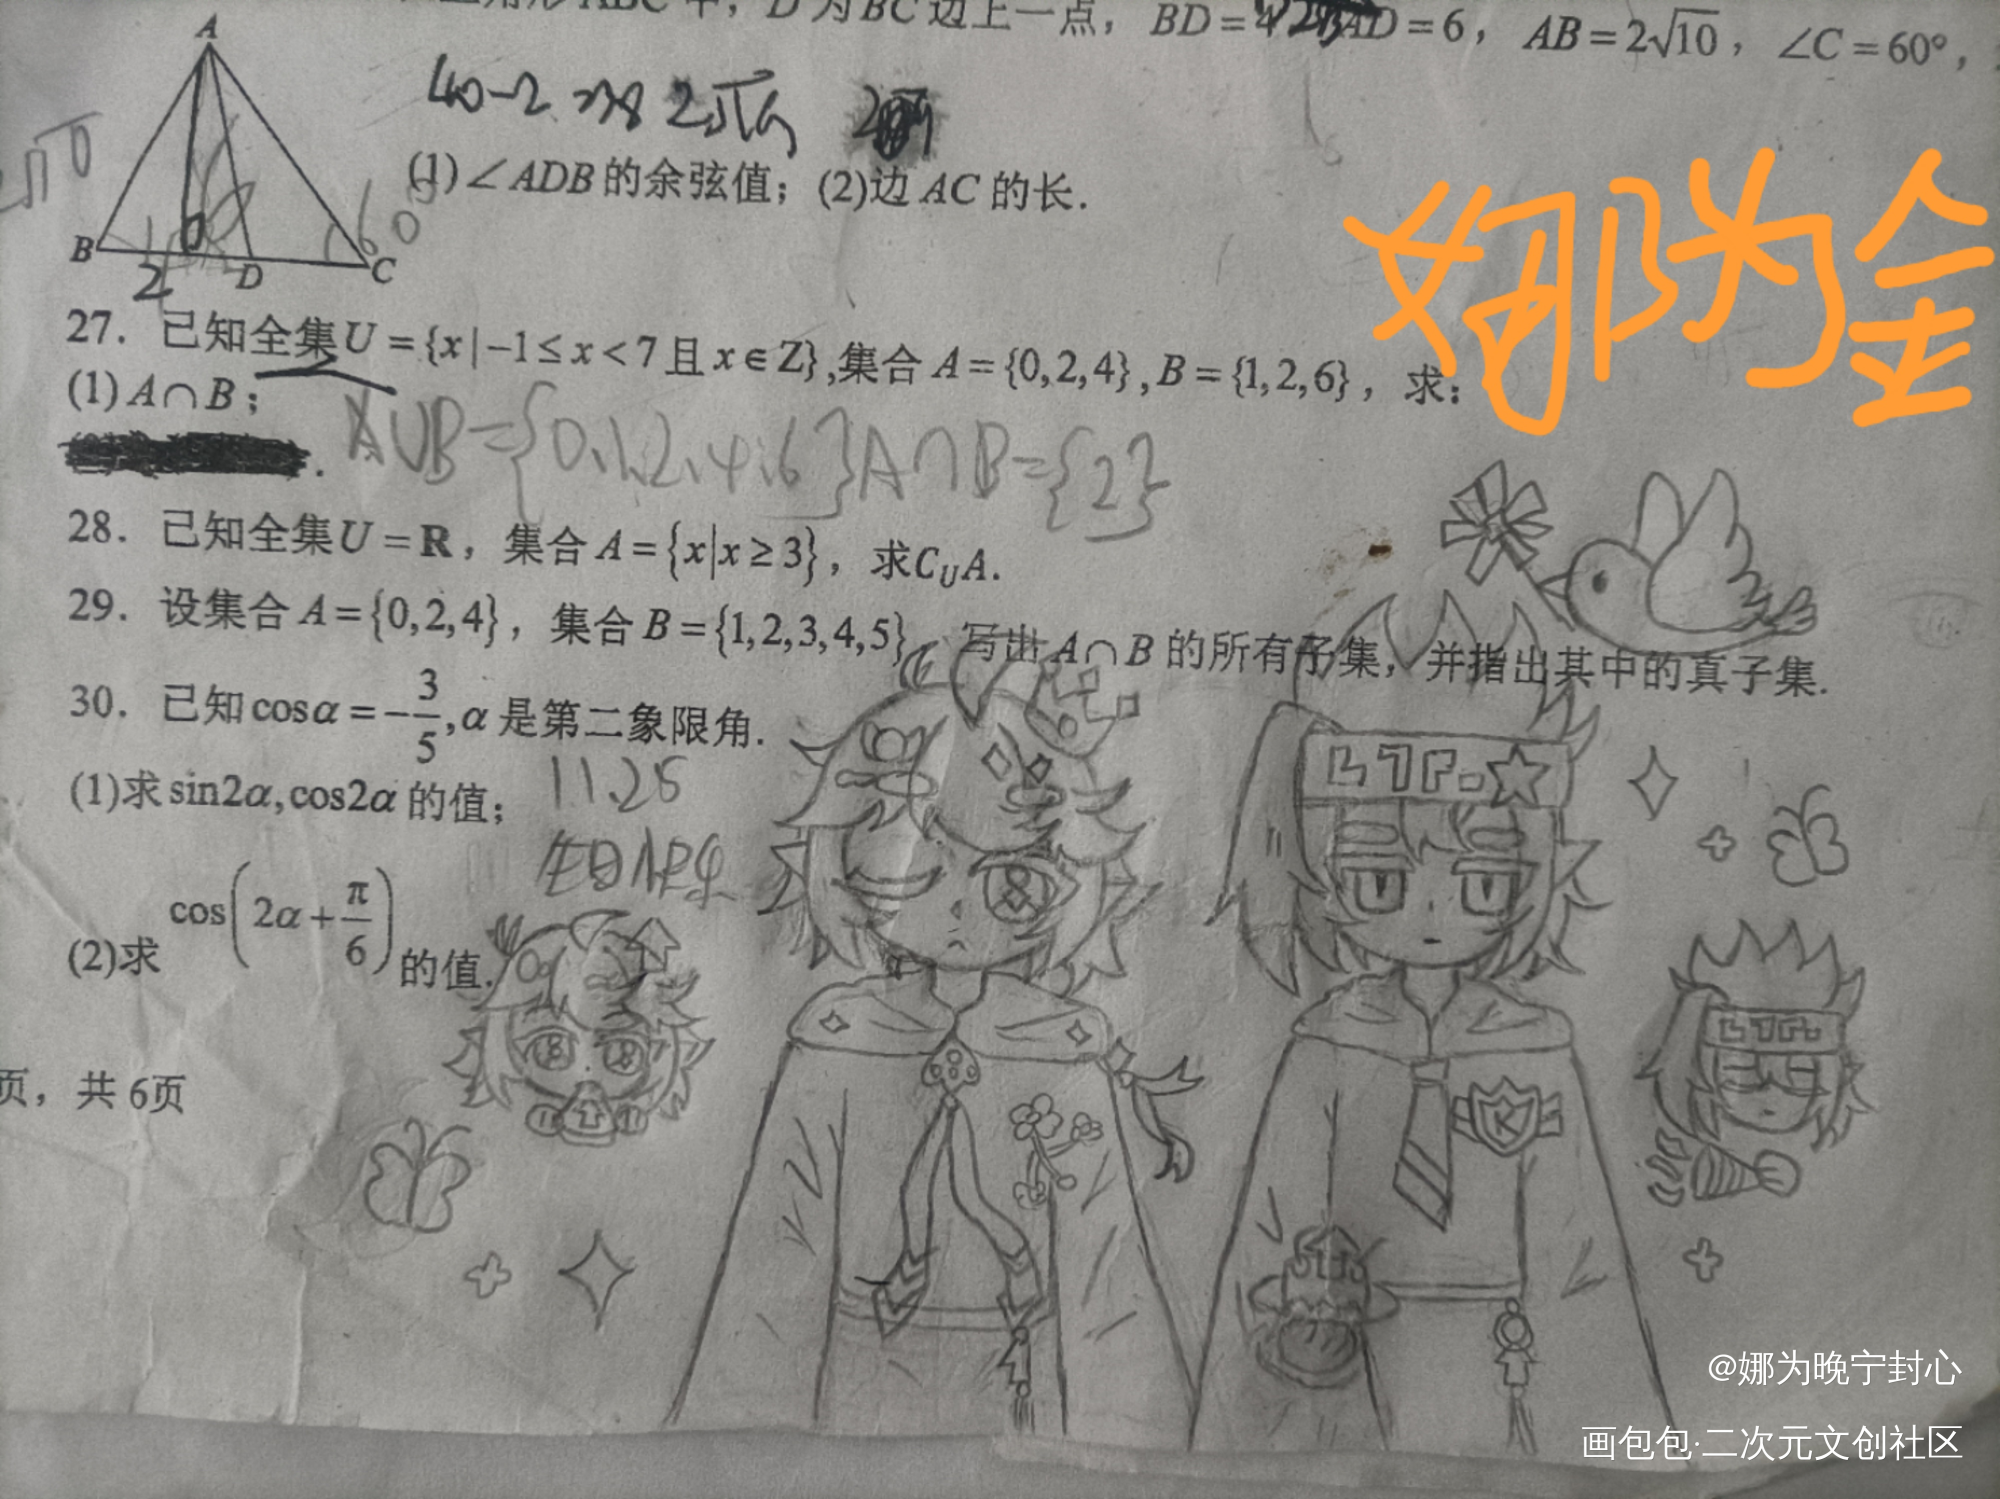 角形ABC中，D为BC边上一点，BD=4 AD=6，AB=2√10，∠C=60°，
A
B
D
C
2
60°
40-2
(1)∠ADB的余弦值；(2)边AC的长.
娜为金
27. 已知全集U={x|-1≤x<7且x∈Z},集合A={0,2,4},B={1,2,6}，求：
(1)A∩B；
A∪B={0,1,2,4,6}A∩B={2}
28. 已知全集U=R，集合A={x|x≥3}，求C_U A.
29. 设集合A={0,2,4}，集合B={1,2,3,4,5}，写出A∩B的所有子集，并指出其中的真子集.
30. 已知cosα=-3/5,α是第二象限角.
(1)求sin2α,cos2α的值；
11.25
生日快乐
(2)求cos(2α+π/6)的值.
页，共6页
K
@娜为晚宁封心
画包包·二次元文创社区